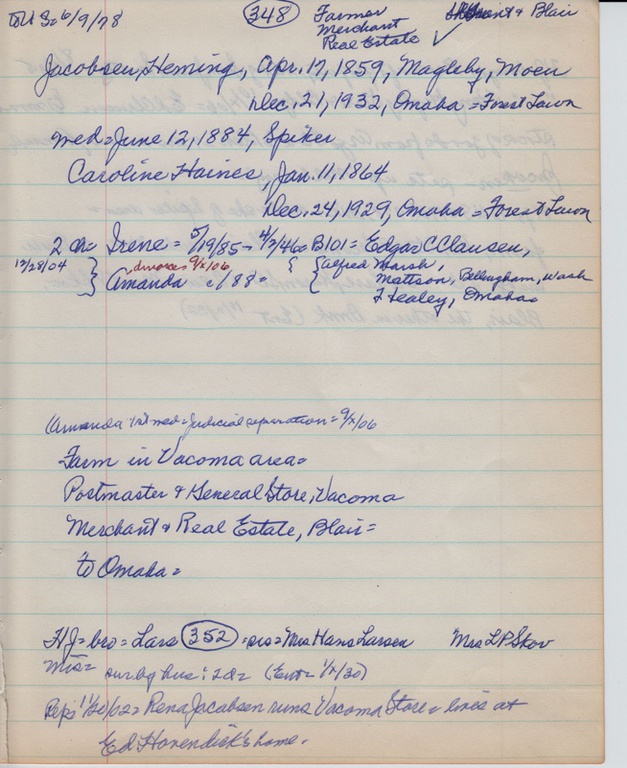 6/9/78 348 Farmer & Blair
Merchant
Real Estate ✓
Jacobsen, Heming, Apr. 17, 1859, Magleby, Moen
Dec. 21, 1932, Omaha = Forest Lawn
med = June 12, 1884, Spiker
Caroline Haines, Jan. 11, 1864
Dec. 24, 1929, Omaha = Forest Lawn
2 ch = Irene = 5/19/85 - 4/2/46 = B101 = Edgar C Clausen,
12/28/04 } divorces 9/x/06 { { Alfred Marsh,
Amanda c/88 = Mattson, Bellingham, Wash
F Healey, Omaha =
(Amanda 1st med = judicial seperation = 9/x/06
Farm in Vacoma area =
Postmaster & General Store, Vacoma
Merchant & Real Estate, Blair =
to Omaha =
HJ = bro = Lars 352 = sis = Mrs Hans Larsen Mrs L P Skov
Mrs = surbg hus: 2d = (Ent = 1/x/30)
11/20/02 = Rena Jacobsen runs Vacoma Store = lives at
Ed Hovendick's home.